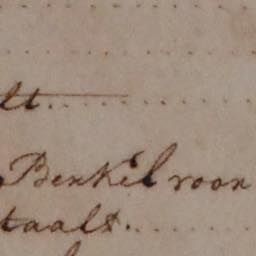 lt..........
Benkel voor
taalt..........